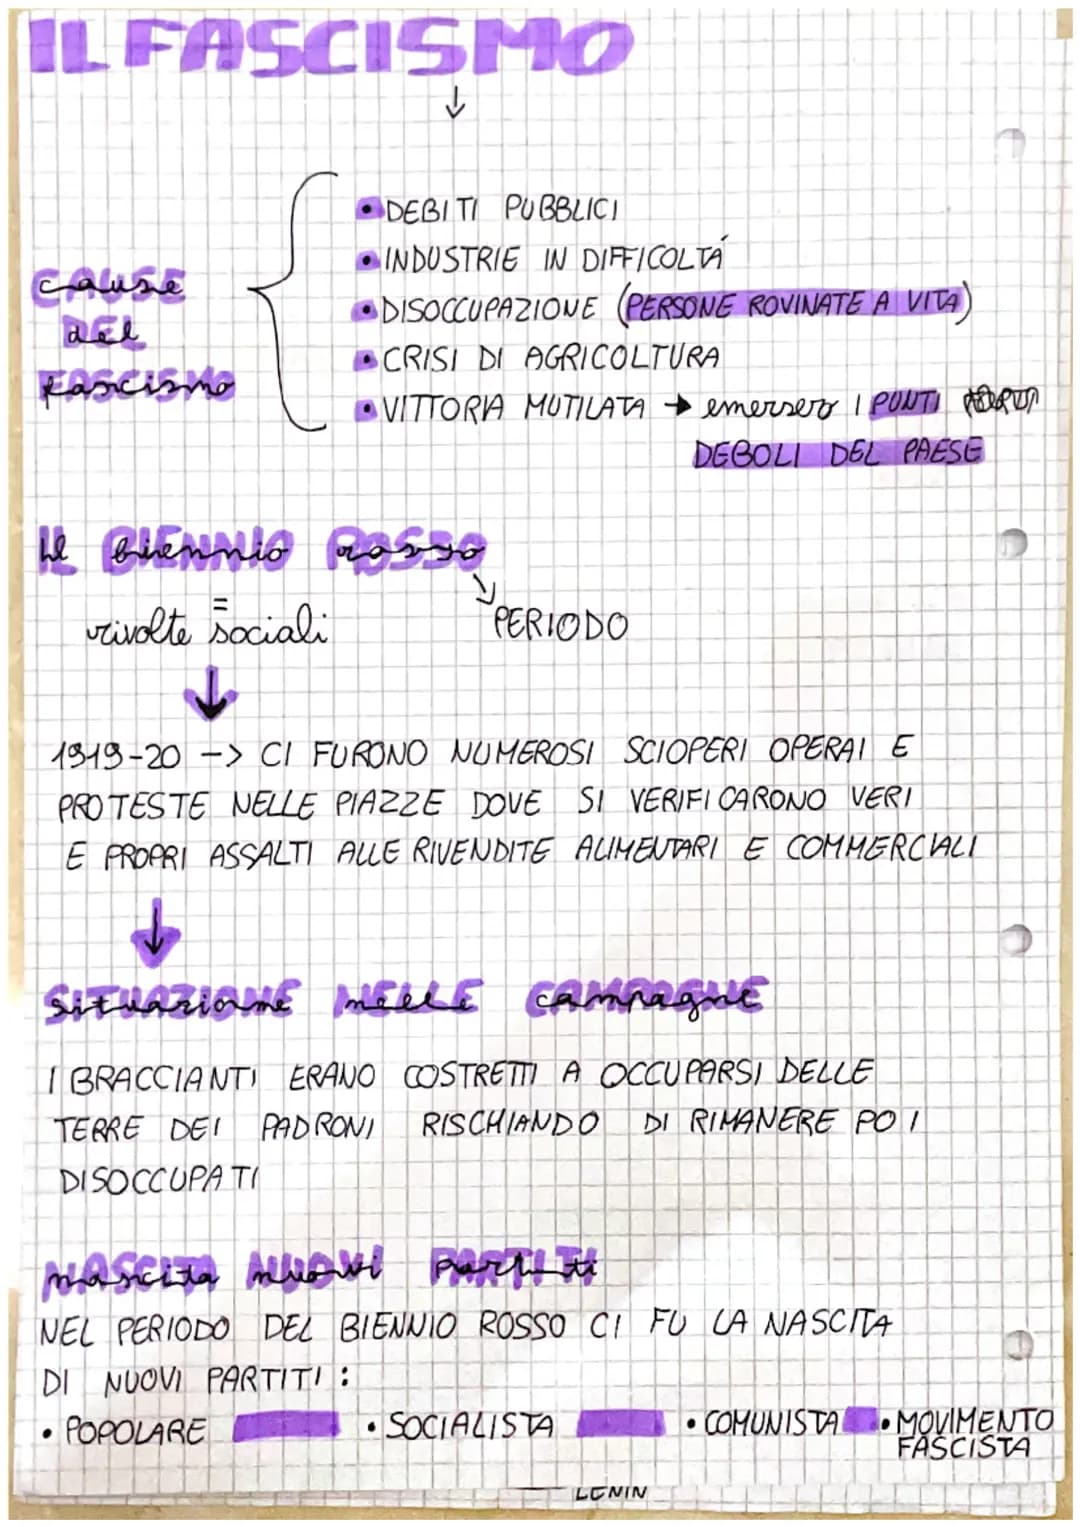 IL FASCISMO
↓
CAUSE
DEL
FASCISMO
• DEBITI PUBBLICI
• INDUSTRIE IN DIFFICOLTÁ
• DISOCCUPAZIONE (PERSONE ROVINATE A VITA)
• CRISI DI AGRICOLTURA
• VITTORIA MUTILATA → emersero I PUNTI
DEBOLI DEL PAESE
Il BIENNIO ROSSO
=
rivolte sociali
PERIODO
↓
1919-20 -> CI FURONO NUMEROSI SCIOPERI OPERAI E
PROTESTE NELLE PIAZZE DOVE SI VERIFICARONO VERI
E PROPRI ASSALTI ALLE RIVENDITE ALIMENTARI E COMMERCIALI
↓
SITUAZIONE NELLE CAMPAGNE
I BRACCIANTI ERANO COSTRETTI A OCCUPARSI DELLE
TERRE DEI PADRONI RISCHIANDO DI RIMANERE POI
DISOCCUPATI
NASCITA NUOVI PARTITI
NEL PERIODO DEL BIENNIO ROSSO CI FU LA NASCITA
DI NUOVI PARTITI :
• POPOLARE • SOCIALISTA • COMUNISTA • MOVIMENTO
FASCISTA
LENIN